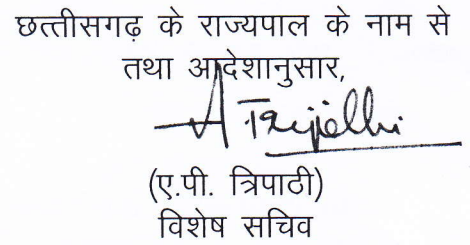 छत्तीसगढ़ के राज्यपाल के नाम से
तथा आदेशानुसार,
(ए.पी. त्रिपाठी)
विशेष सचिव